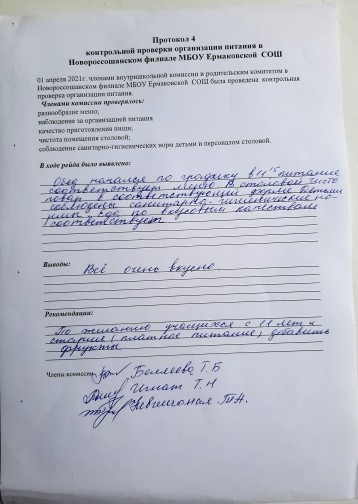 Протокол 4
контрольной проверки организации питания в
Новороссошанском филиале МБОУ Ермаковской СОШ
01 апреля 2021г. членами внутришкольной комиссии и родительским комитетом в
Новороссошанском филиале МБОУ Ермаковской СОШ была проведена контрольная
проверка организации питания.
Членами комиссии проверялось:
разнообразие меню;
наблюдение за организацией питания
качество приготовления пищи;
чистота помещения столовой;
соблюдение санитарно-гигиенических норм детьми и персоналом столовой.
В ходе рейда было выявлено:
Обед начался по графику в 11 15 питание
соответствует меню В столовой чисто
повар в соответствующей форме
соблюдены санитарно-гигиенические но-
рмы Еда по вкусовым качествам
соответствует
Выводы:
Всё очень вкусно
Рекомендации:
По желанию учащихся с 11 лет и
старше (платное питание) добавить
фрукты
Члены комиссии
Беляева Т.Б
Игнат Т.Н